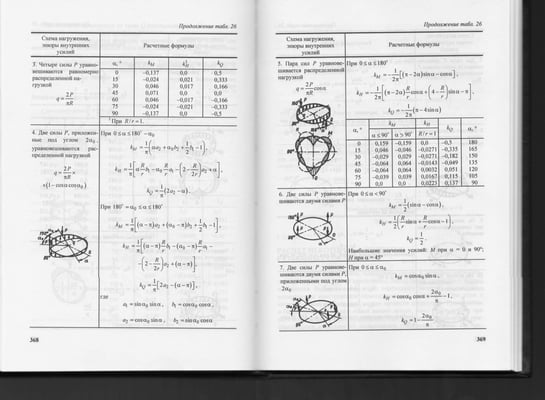 Продолжение табл. 26
Схема нагружения,
эпюры внутренних
усилий
Расчетные формулы
3. Четыре силы P уравно-
вешиваются равномерно
распределенной на-
грузкой
q = 2P/(πR)
α, ° k_M k_H^1 k_Q
0 -0,137 0,0 0,5
15 -0,024 0,021 0,333
30 0,046 0,017 0,166
45 0,071 0,0 0,0
60 0,046 -0,017 -0,166
75 -0,024 -0,021 -0,333
90 -0,137 0,0 -0,5
¹ При R/r = 1.
4. Две силы P, приложен-
ные под углом 2α₀,
уравновешиваются рас-
пределенной нагрузкой
При 0 ≤ α ≤ 180° – α₀
При 180° – α₀ ≤ α ≤ 180°
k_Q = 1/π [2a₂ – (α – π)],
где
a₁ = sinα₀ sinα, b₁ = cosα₀ cosα,
a₂ = cosα₀ sinα, b₂ = sinα₀ cosα
368
Продолжение табл. 26
Схема нагружения,
эпюры внутренних
усилий
Расчетные формулы
5. Пара сил P уравнове-
шивается распределенной
нагрузкой
q = 2P/(πR) cosα
При 0 ≤ α ≤ 180°
k_M = –1/(2π) [(π – 2α) sinα – cosα],
k_Q = –1/(2π) (π – 4sinα)
α, ° k_M k_H k_Q α, °
α ≤ 90° α > 90° R/r = 1
0 0,159 -0,159 0,0 -0,5 180
15 0,046 -0,046 -0,0271 -0,335 165
30 -0,029 0,029 -0,0271 -0,182 150
45 -0,064 0,064 -0,0143 -0,049 135
60 -0,064 0,064 0,0032 0,051 120
75 -0,039 0,039 0,0167 0,115 105
90 0,0 0,0 0,0223 0,137 90
6. Две силы P уравнове-
шиваются двумя силами P
При 0 ≤ α < 90°
k_M = 1/2 (sinα – cosα),
k_H = 1/2 (R/r sinα + R/r cosα – 1),
k_Q = 1/2.
Наибольшие значения усилий: M при α = 0 и 90°;
H при α = 45°
7. Две силы P уравнове-
шиваются двумя силами P,
приложенными под углом
2α₀
При 0 ≤ α ≤ α₀
k_M = cosα₀ sinα,
k_H = cosα₀ cosα + 2α₀/π – 1,
k_Q = 1 – 2α₀/π
369